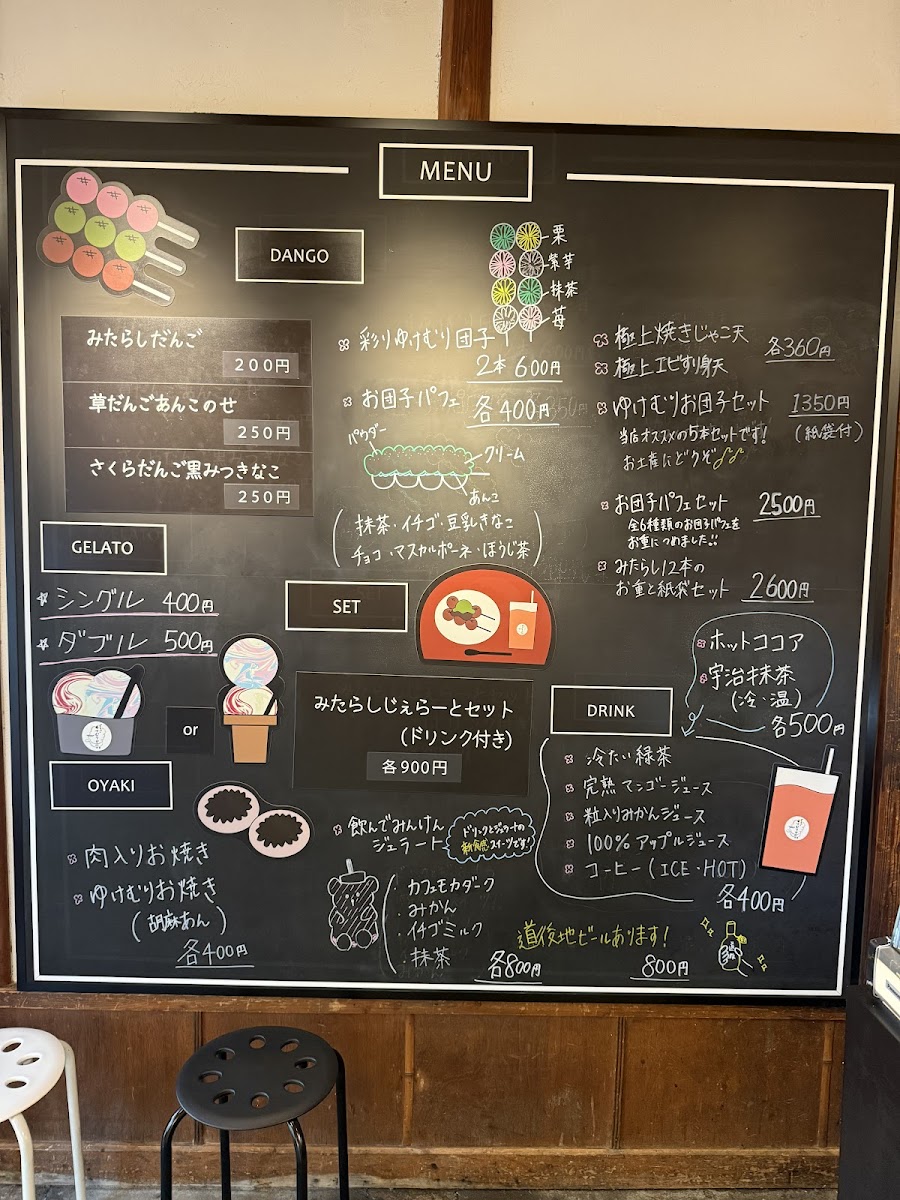 MENU
DANGO
みたらしだんご
200円
草だんごあんこのせ
250円
さくらだんご黒みつきなこ
250円
栗
紫芋
抹茶
苺
彩りゆけむり団子
2本 600円
お団子パフェ
各400円
パウダー
クリーム
あんこ
抹茶・イチゴ・豆乳きなこ
チョコ・マスカルポーネ・ほうじ茶
極上焼きじゃこ天
極上エビすり身天
各360円
ゆけむりお団子セット
1350円
(紙袋付)
当店オススメの5本セットです!
お土産にどうぞ
お団子パフェセット
2500円
全6種類のお団子パフェを
お重につめました!!
みたらし12本の
お重と紙袋セット
2600円
GELATO
シングル 400円
ダブル 500円
or
SET
みたらしじぇらーとセット
(ドリンク付き)
各900円
DRINK
ホットココア
宇治抹茶
(冷・温)
各500円
冷たい緑茶
完熟マンゴージュース
粒入りみかんジュース
100% アップルジュース
コーヒー(ICE・HOT)
各400円
OYAKI
肉入りお焼き
ゆけむりお焼き
(胡麻あん)
各400円
飲んでみんけん
ジェラート
ドリンクとジェラートの
新食感スイーツです!
・カフェモカダーク
・みかん
・イチゴミルク
・抹茶
各800円
道後地ビールあります!
800円